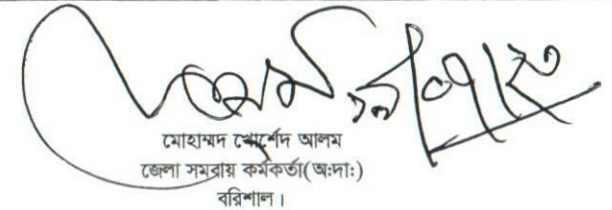 মোহাম্মদ খোর্শেদ আলম
জেলা সমবায় কর্মকর্তা(অ:দা:)
বরিশাল।